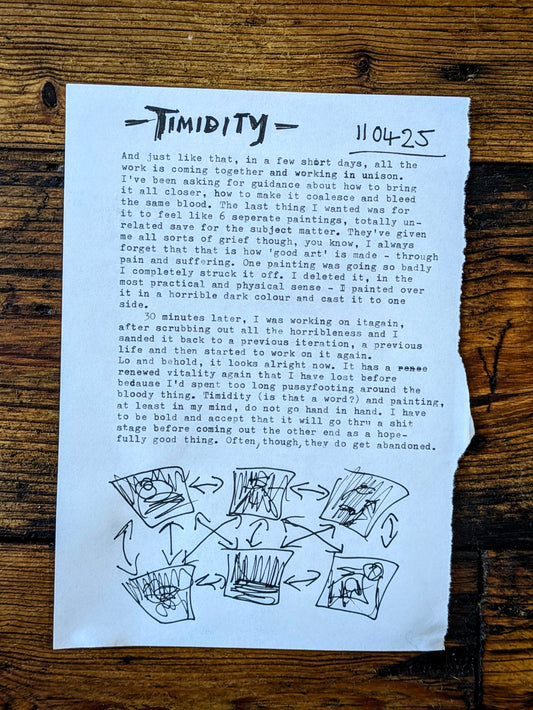 - TIMIDITY -
11 04 25
And just like that, in a few short days, all the
work is coming together and working in unison.
I've been asking for guidance about how to bring
it all closer, how to make it coalesce and bleed
the same blood. The last thing I wanted was for
it to feel like 6 seperate paintings, totally un-
related save for the subject matter. They've given
me all sorts of grief though, you know, I always
forget that that is how 'good art' is made - through
pain and suffering. One painting was going so badly
I completely struck it off. I deleted it, in the
most practical and physical sense - I painted over
it in a horrible dark colour and cast it to one
side.
30 minutes later, I was working on itagain,
after scrubbing out all the horribleness and I
sanded it back to a previous iteration, a previous
life and then started to work on it again.
Lo and behold, it looks alright now. It has a
renewed vitality again that I have lost before
bedause I'd spent too long pussyfooting around the
bloody thing. Timidity (is that a word?) and painting,
at least in my mind, do not go hand in hand. I have
to be bold and accept that it will go thru a shit
stage before coming out the other end as a hope-
fully good thing. Often, though, they do get abandoned.